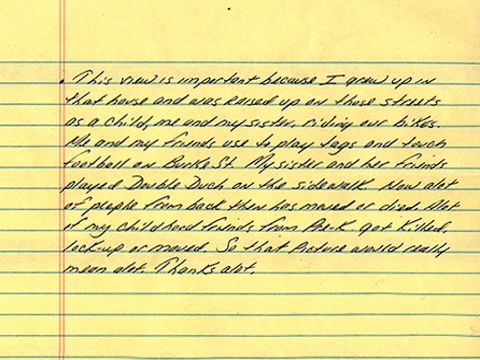 This view is important because I grew up in
that house and was raised up on those streets
as a child, me and my sister, riding our bikes.
Me and my friends use to play tags and touch
football on Burke St. My sister and her friends
played Double Duch on the sidewalk. Now alot
of people from back then has moved or died. Alot
of my childhood friends from Pre-K got killed,
lock-up or moved. So that picture would really
mean alot. Thanks alot.